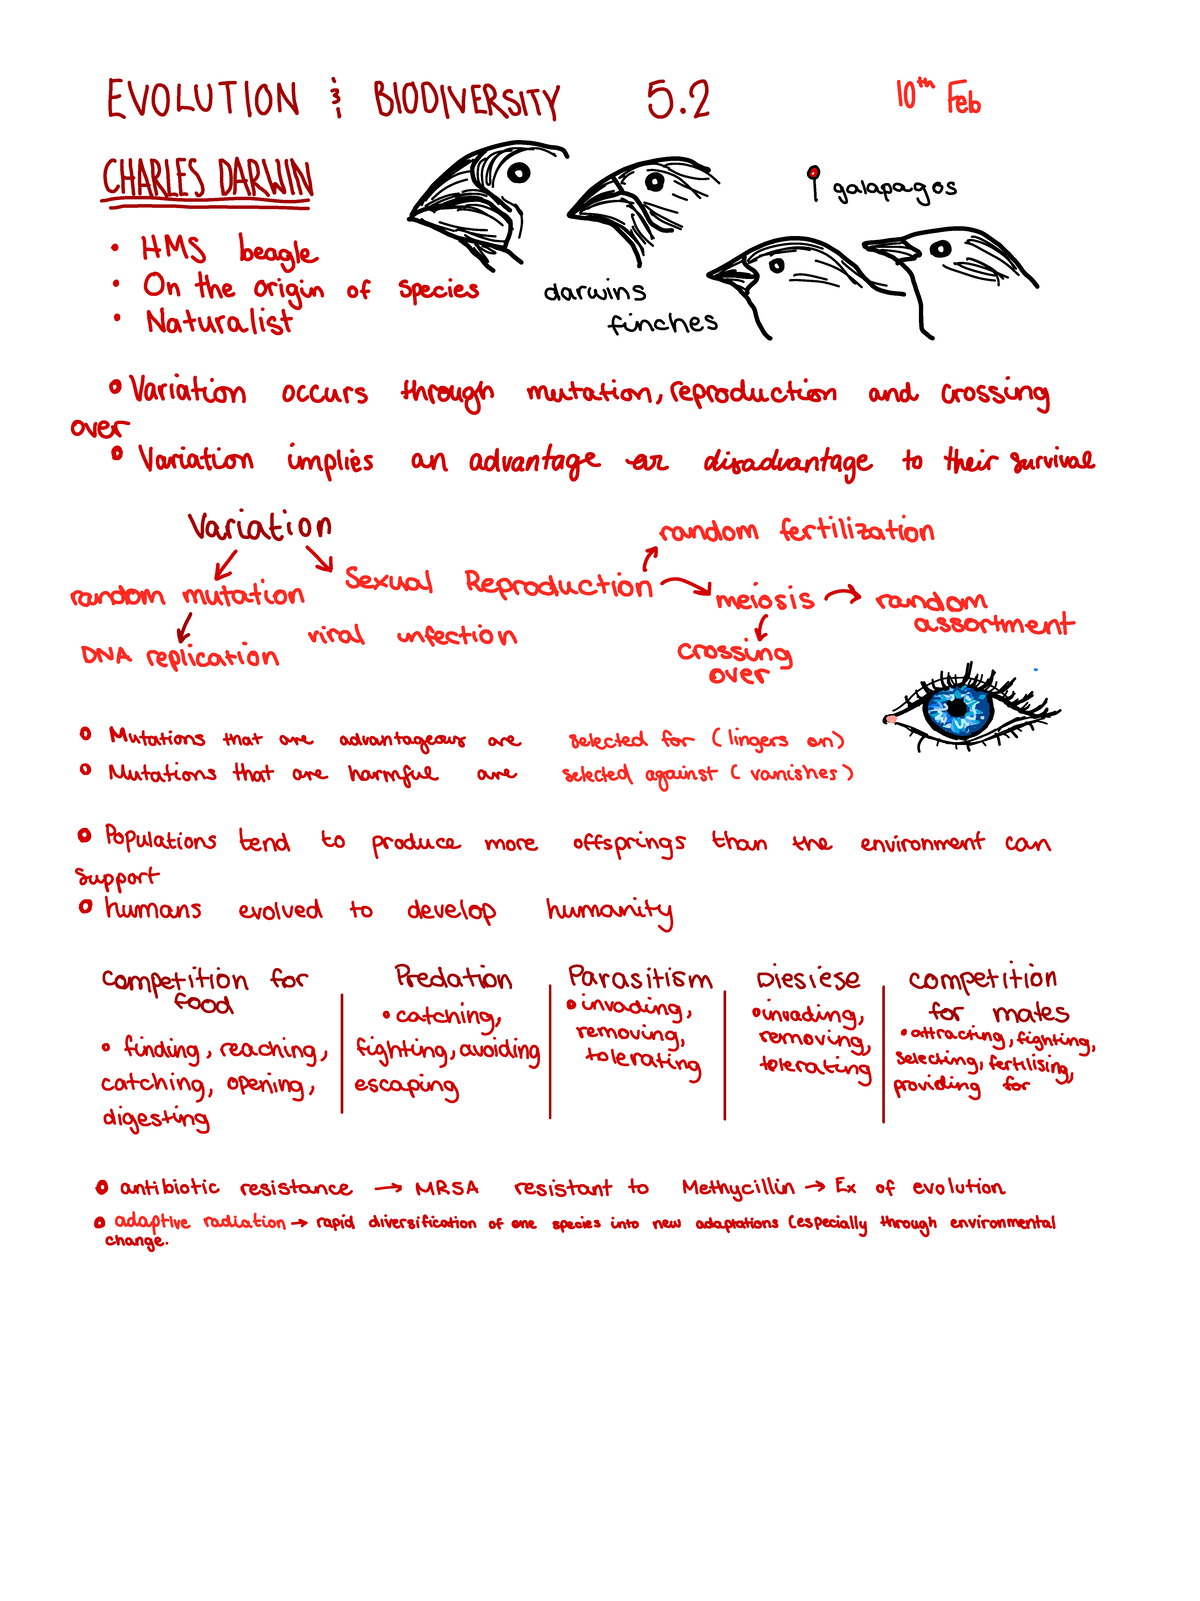 EVOLUTION & BIODIVERSITY 5.2 10th Feb
CHARLES DARWIN
galapagos
• HMS beagle
• On the origin of species
• Naturalist
darwins
finches
• Variation occurs through mutation, reproduction and crossing
over
• Variation implies an advantage or disadvantage to their survival
Variation
random fertilization
random mutation
Sexual Reproduction
meiosis → random
assortment
DNA replication
viral infection
crossing
over
• Mutations that are advantageous are selected for (lingers on)
• Mutations that are harmful are selected against (vanishes)
• Populations tend to produce more offsprings than the environment can
support
• humans evolved to develop humanity
Competition for
food
• finding, reaching,
catching, opening,
digesting
Predation
• catching,
fighting, avoiding
escaping
Parasitism
• invading,
removing,
tolerating
Diesiese
• invading,
removing,
tolerating
competition
for mates
• attracting, fighting,
selecting, fertilising,
providing for
• antibiotic resistance → MRSA resistant to Methycillin → Ex of evolution
• adaptive radiation → rapid diversification of one species into new adaptations (especially through environmental
change.